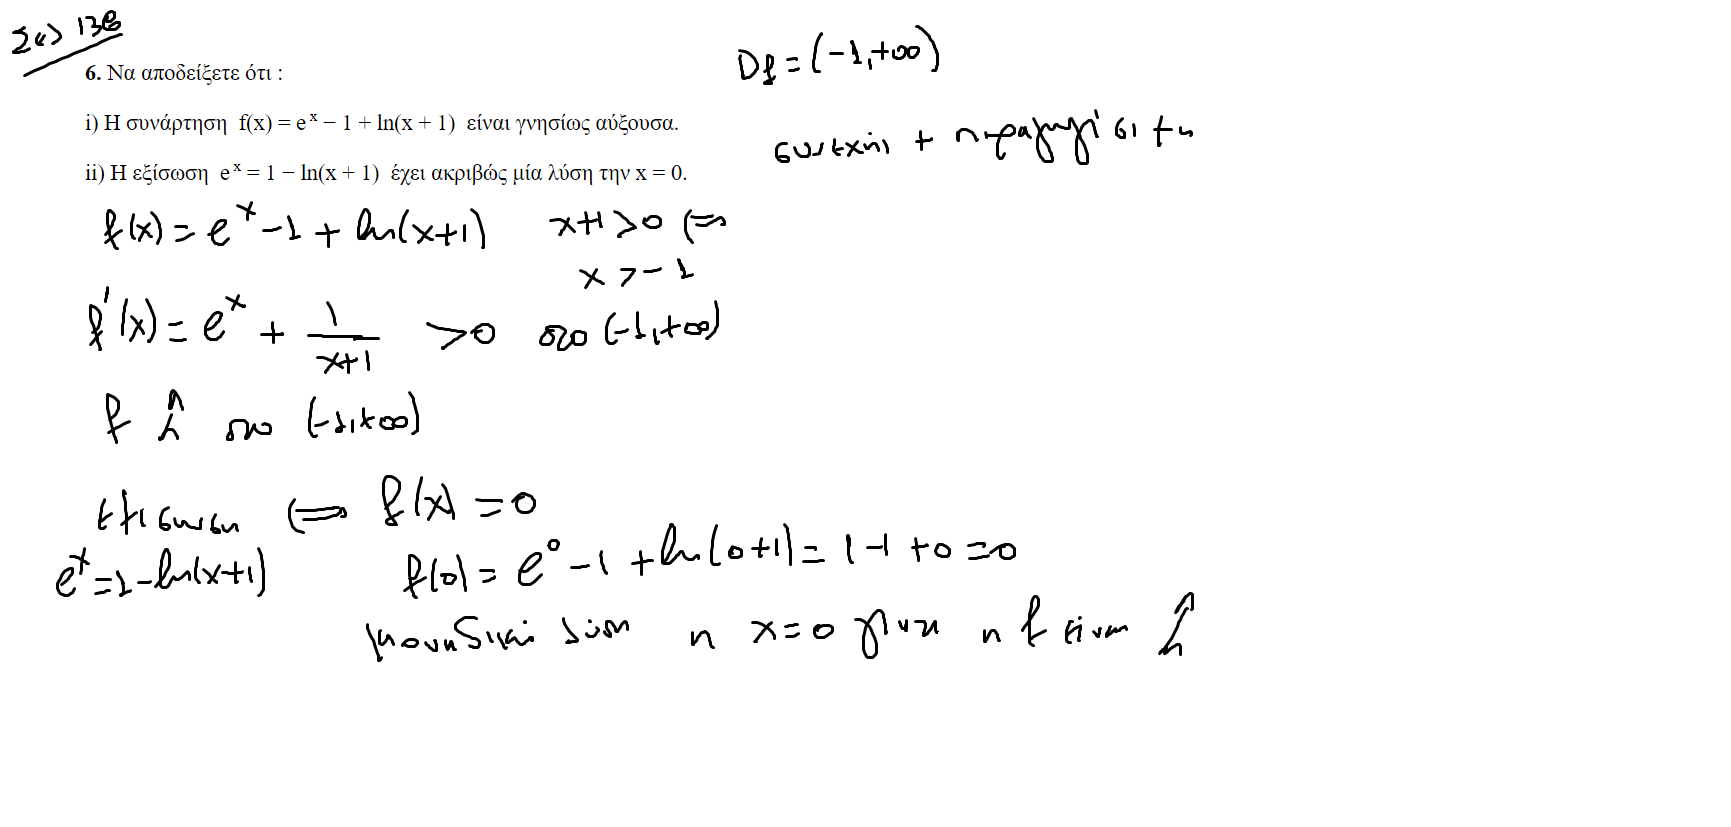 Σελ 138
6. Να αποδείξετε ότι :
i) Η συνάρτηση f(x) = eˣ − 1 + ln(x + 1) είναι γνησίως αύξουσα.
ii) Η εξίσωση eˣ = 1 − ln(x + 1) έχει ακριβώς μία λύση την x = 0.
Df = (-1,+∞)
συνεχής + παραγωγίσιμη
f(x) = eˣ -1 + ln(x+1) x+1 >0 ⇔
x > -1
f'(x) = eˣ + 1/(x+1) >0 στο (-1,+∞)
f ↑ στο (-1,+∞)
εξίσωση ⇔ f(x) = 0
eˣ = 1 - ln(x+1)
f(0) = e⁰ -1 + ln(0+1) = 1-1 +0 =0
μοναδική λύση η x=0 γιατί η f είναι ↑